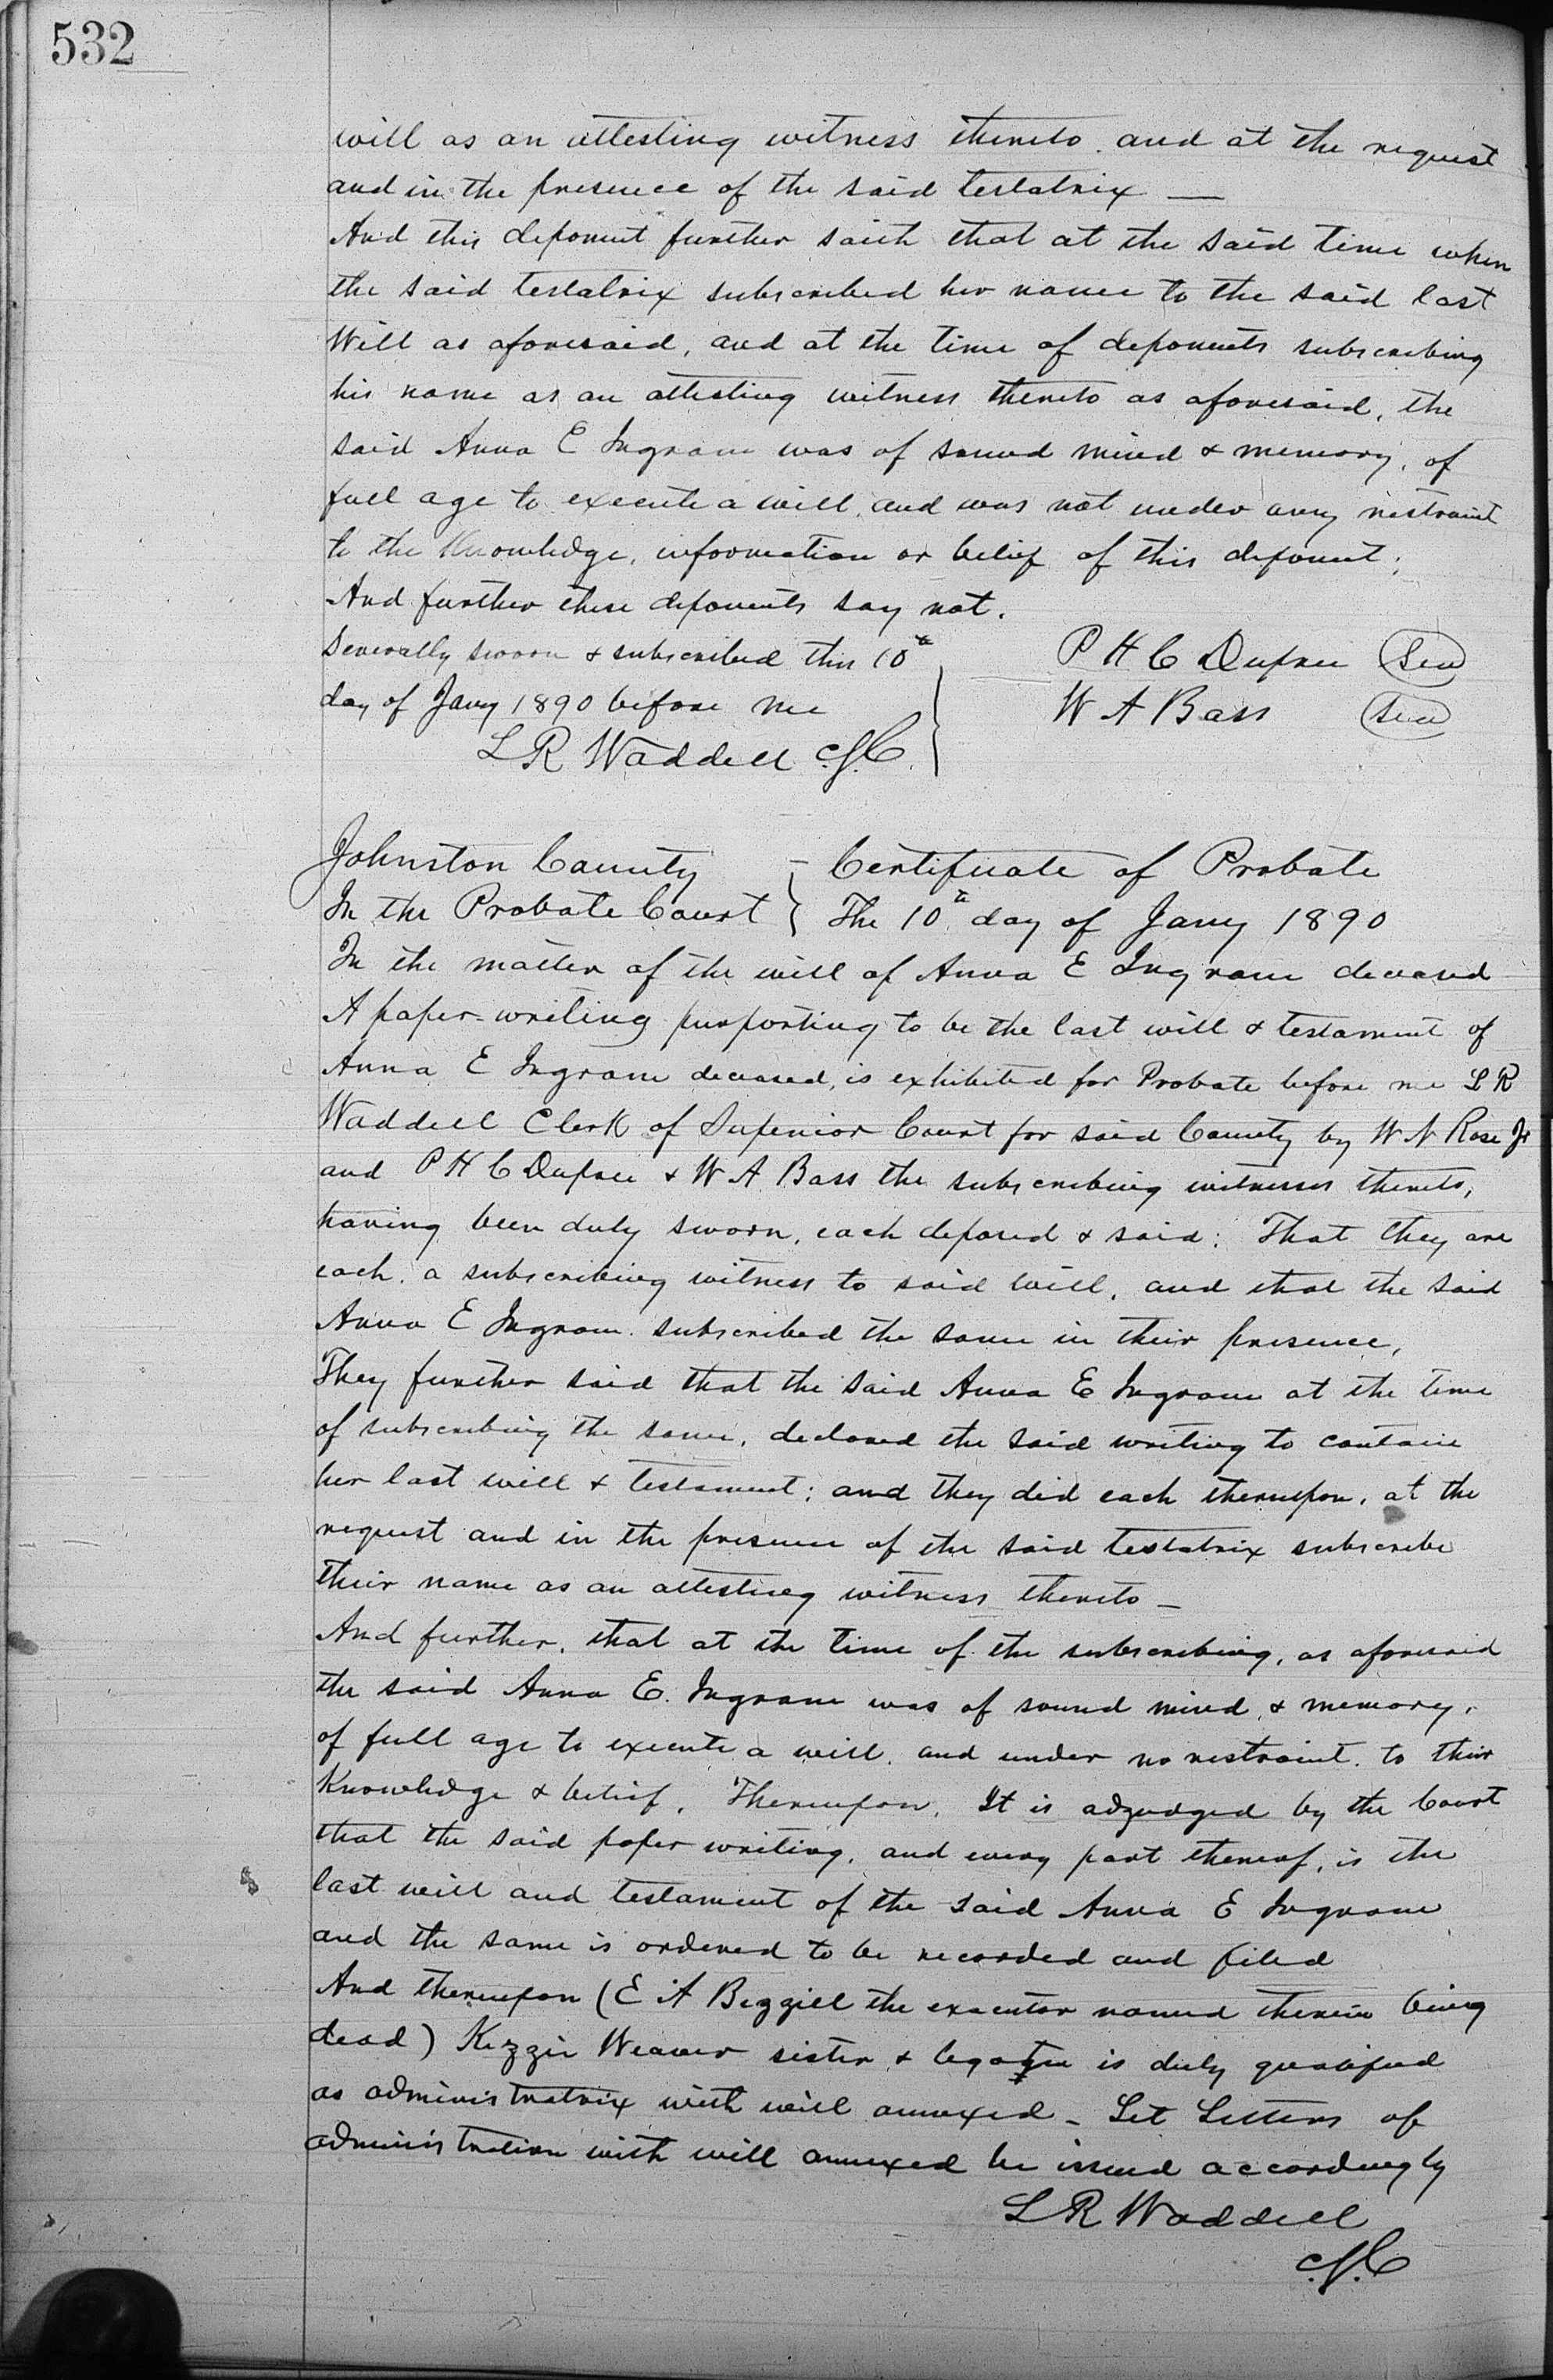 532
will as an attesting witness thereto. and at the request
and in the presence of the said testatrix —
And this deponent further saith that at the said time when
the said testatrix subscribed her name to the said last
Will as aforesaid, and at the time of deponents subscribing
his name as an attesting witness thereto as aforesaid, the
said Anna E Ingram was of sound mind & memory, of
full age to execute a will, and was not under any restraint
to the Knowledge, information or belief of this deponent;
And further these deponents say not.
Severally sworn & subscribed this 10th
day of Jany 1890 before me
L R Waddell C.S.C.
P H C Dupree (Seal)
W A Bass (Seal)
Johnston County – Certificate of Probate
In the Probate Court } The 10th day of Jany 1890
In the matter of the will of Anna E Ingram deceased
A paper-writing purporting to be the last will & testament of
Anna E Ingram deceased, is exhibited for Probate before me L R
Waddell Clerk of Superior Court for said County by W N Rose Jr
and P H C Dupree & W A Bass the subscribing witnesses thereto,
having been duly sworn, each deposed & said: That they are
each. a subscribing witness to said will, and that the said
Anna E Ingram. subscribed the same in their presence,
They further said that the said Anna E Ingram at the time
of subscribing the same, declared the said writing to contain
her last will & testament; and they did each thereupon, at the
request and in the presence of the said testatrix subscribe
their name as an attesting witness thereto –
And further, that at the time of the subscribing, as aforesaid
the said Anna E. Ingram was of sound mind, & memory,
of full age to execute a will, and under no restraint. to their
Knowledge & belief. Thereupon, It is adjudged by the Court
that the said paper writing, and every part thereof, is the
last will and testament of the said Anna E Ingram
and the same is ordered to be recorded and filed
And thereupon (E A Bizzell the executor named therein being
dead) Kizzie Weaver sister & legatee is duly qualified
as administratrix with will annexed – Let Letters of
administration with will annexed be issued accordingly
L R Waddell
C.S.C